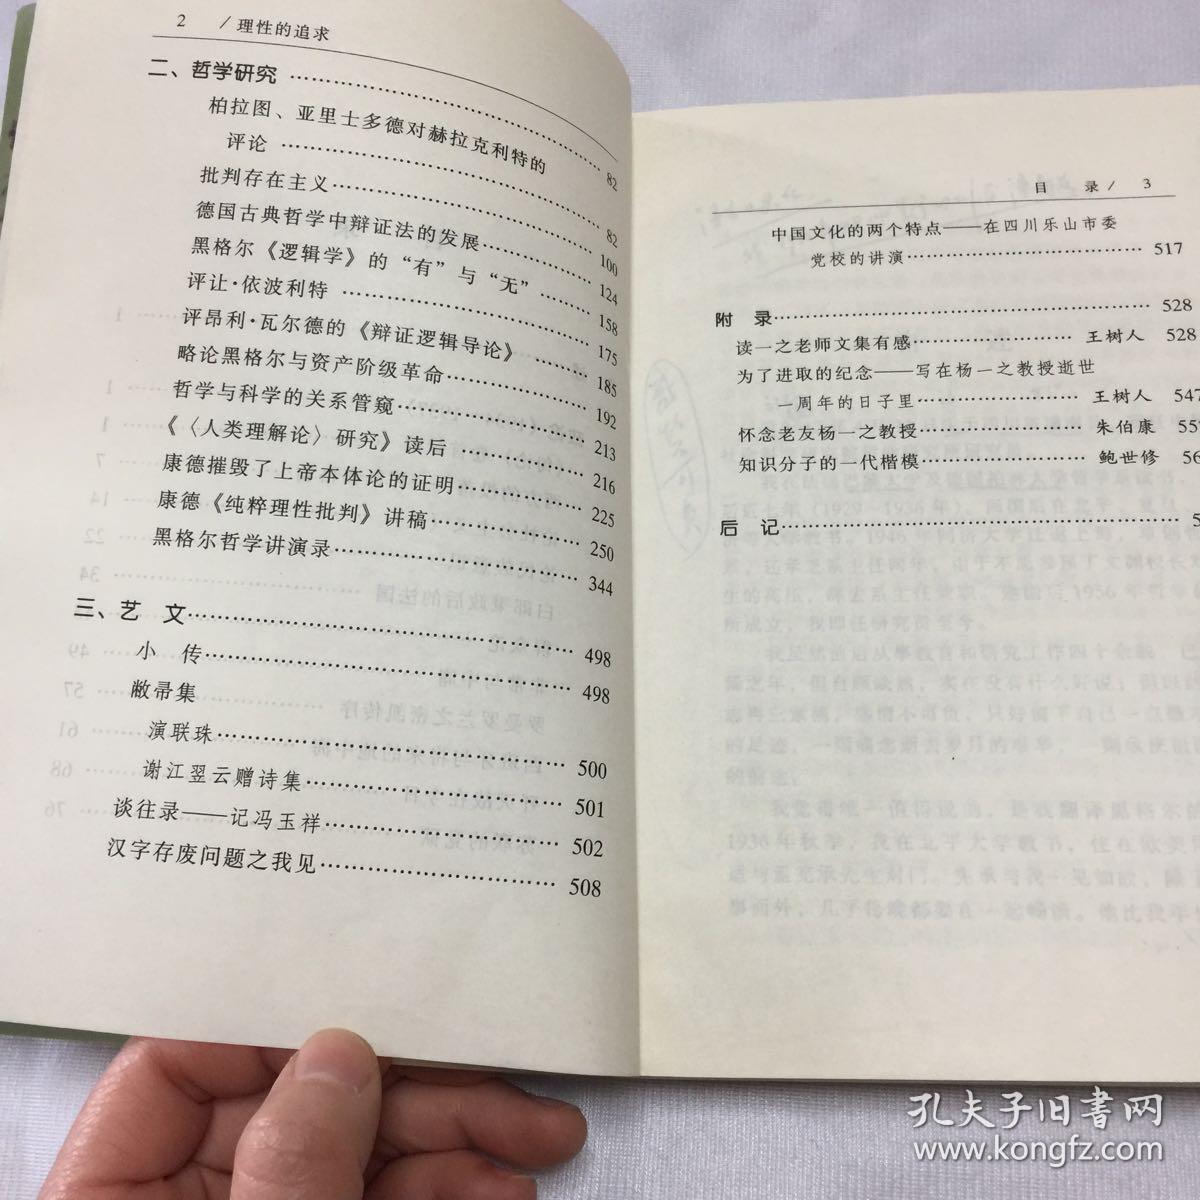 2 / 理性的追求
二、哲学研究 …… 82
柏拉图、亚里士多德对赫拉克利特的
评论 …… 82
批判存在主义 …… 100
德国古典哲学中辩证法的发展 …… 124
黑格尔《逻辑学》的“有”与“无” …… 158
评让·依波利特 …… 175
评昂利·瓦尔德的《辩证逻辑导论》 …… 185
略论黑格尔与资产阶级革命 …… 192
哲学与科学的关系管窥 …… 213
《〈人类理解论〉研究》读后 …… 216
康德摧毁了上帝本体论的证明 …… 225
康德《纯粹理性批判》讲稿 …… 250
黑格尔哲学讲演录 …… 344
三、艺 文 …… 498
小 传 …… 498
敝帚集
演联珠 …… 500
谢江翌云赠诗集 …… 501
谈往录——记冯玉祥 …… 502
汉字存废问题之我见 …… 508
目 录 / 3
中国文化的两个特点——在四川乐山市委
党校的讲演 …… 517
附 录 …… 528
读一之老师文集有感 …… 王树人 528
为了进取的纪念——写在杨一之教授逝世
一周年的日子里 …… 王树人 547
怀念老友杨一之教授 …… 朱伯康 55
知识分子的一代楷模 …… 鲍世修 56
后 记 …… 5
孔夫子旧书网
www.kongfz.com